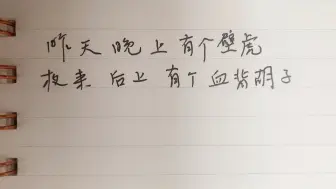 昨天晚上有个壁虎
枚来后上有个血背胡子